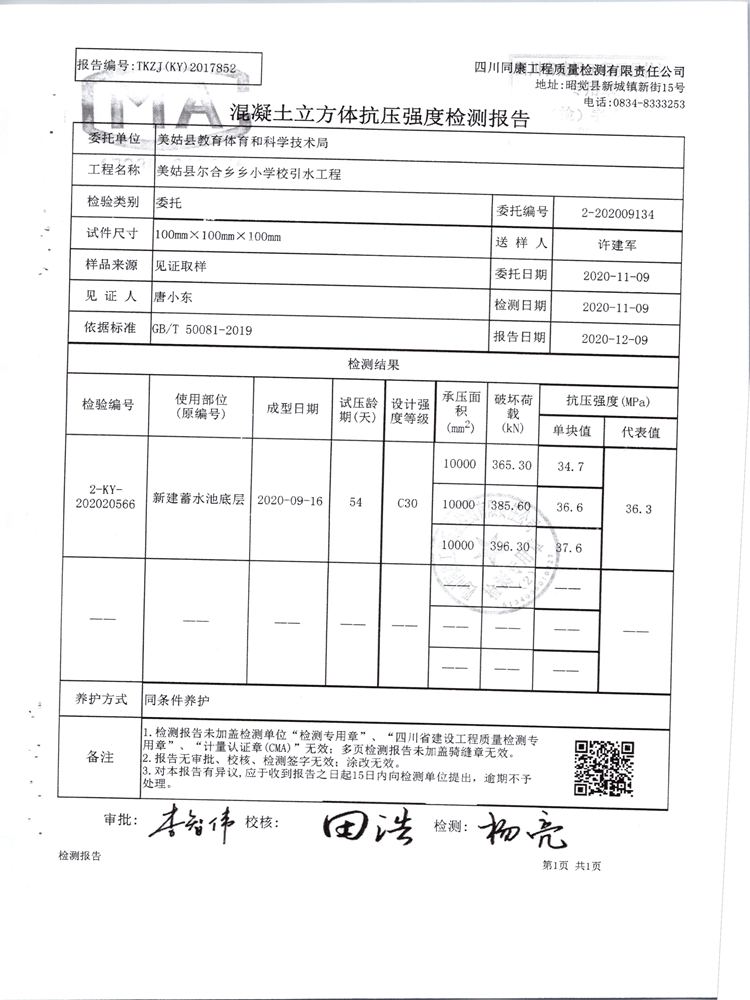 报告编号:TKZJ(KY)2017852
四川同康工程质量检测有限责任公司
地址:昭觉县新城镇新街15号
电话:0834-8333253
CMA
混凝土立方体抗压强度检测报告
委托单位 美姑县教育体育和科学技术局
工程名称 美姑县尔合乡乡小学校引水工程
检验类别 委托 委托编号 2-202009134
试件尺寸 100mm×100mm×100mm 送 样 人 许建军
样品来源 见证取样 委托日期 2020-11-09
见 证 人 唐小东 检测日期 2020-11-09
依据标准 GB/T 50081-2019 报告日期 2020-12-09
检测结果
检验编号 使用部位(原编号) 成型日期 试压龄期(天) 设计强度等级 承压面积(mm²) 破坏荷载(kN) 抗压强度(MPa)
单块值 代表值
10000 365.30 34.7
2-KY-202020566 新建蓄水池底层 2020-09-16 54 C30 10000 385.60 36.6 36.3
10000 396.30 37.6
—— ——
—— —— —— —— —— —— —— —— ——
—— —— ——
养护方式 同条件养护
备注
1.检测报告未加盖检测单位“检测专用章”、“四川省建设工程质量检测专
用章”、“计量认证章(CMA)”无效；多页检测报告未加盖骑缝章无效。
2.报告无审批、校核、检测签字无效；涂改无效。
3.对本报告有异议,应于收到报告之日起15日内向检测单位提出，逾期不予
处理。
审批: 李智伟 校核: 田浩 检测: 杨亮
检测报告
第1页 共1页